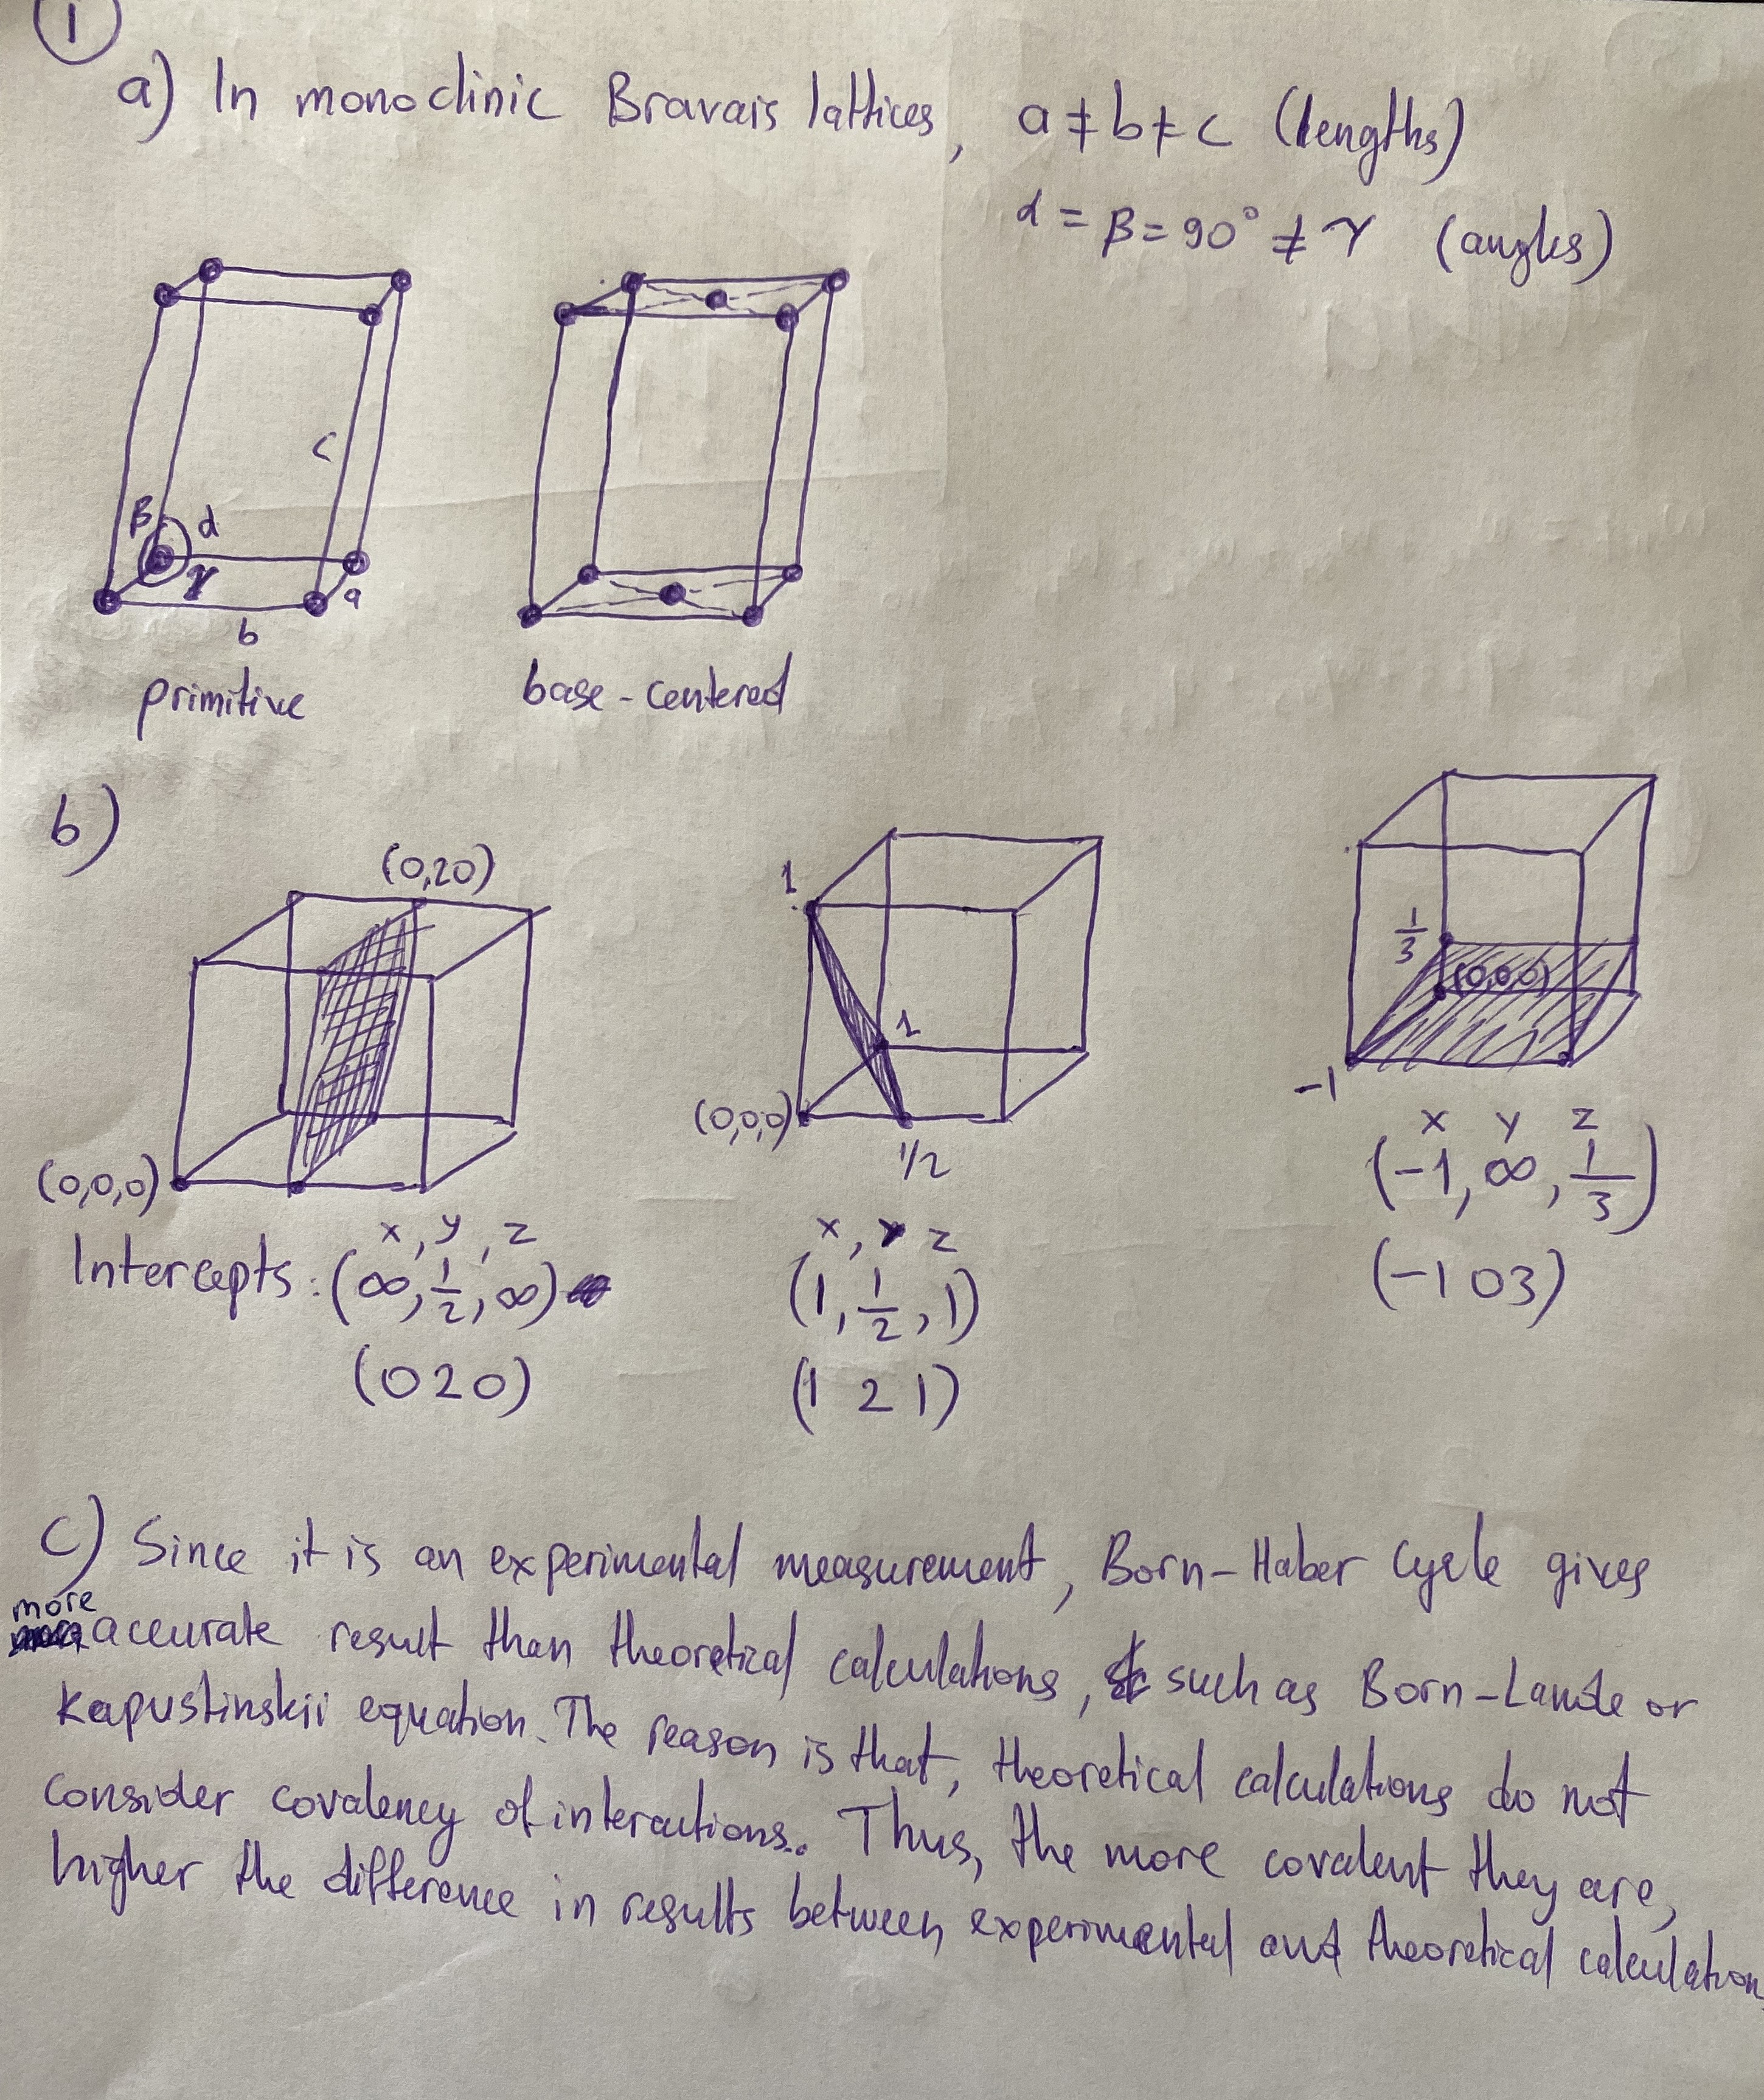 1
a) In monoclinic Bravais lattices, a ≠ b ≠ c (lengths)
α = β = 90° ≠ γ (angles)
c
β α
γ a
b
primitive base-centered
b)
(0,20) 1 1/3
(0,0,0)
1
(0,0,0) 1/2 -1
(0,0,0)
x, y, z x, y z x y z
Intercepts: (∞, 1/2, ∞) (1, 1/2, 1) (-1, ∞, 1/3)
(020) (1 2 1) (-1 0 3)
c) Since it is an experimental measurement, Born-Haber Cycle gives
more accurate result than theoretical calculations, such as Born-Lande or
Kapustinskii equation. The reason is that, theoretical calculations do not
consider covalency of interactions. Thus, the more covalent they are,
higher the difference in results between experimental and theoretical calculation